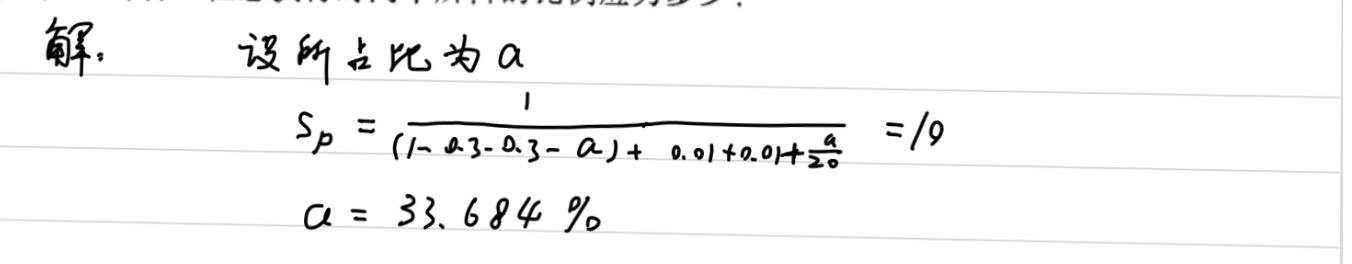 解: 设所占比为 a
Sp = 1/((1-0.3-0.3-a)+0.01+0.01+a/20) = 10
a = 33.684 %